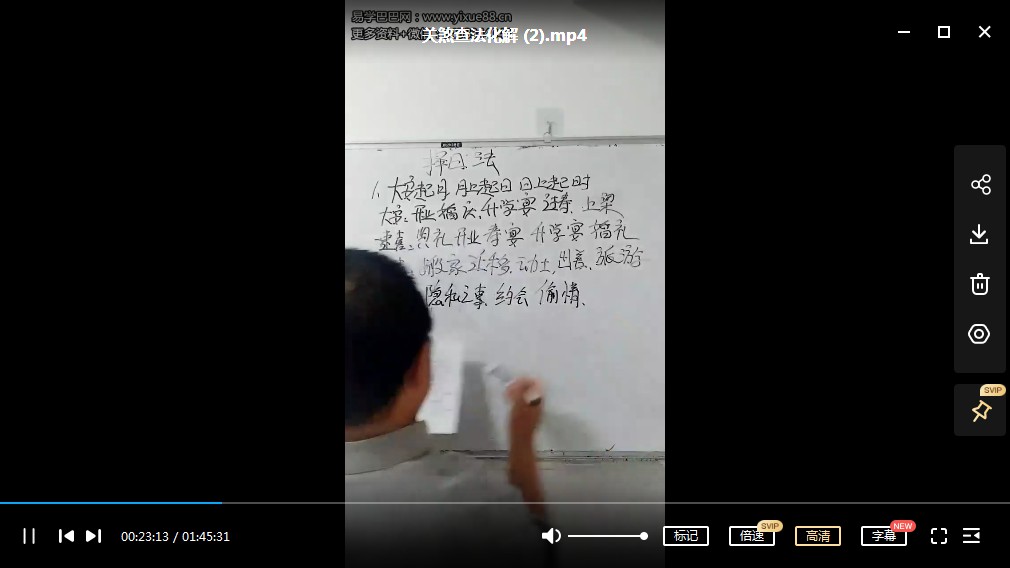 易学巴巴网：www.yixue88.cn
更多资料+微
关煞查法化解 (2).mp4
择日法
1、大安起月 月上起日 日上起时
大安：开业 婚庆、升学宴 进寿、上梁
速喜：典礼 开业 寿宴 升学宴 婚礼
搬家 迁移、动土、出差、旅游
隐私之事、约会 偷情、
SVIP
00:23:13 / 01:45:31
标记
倍速
SVIP
高清
字幕
NEW